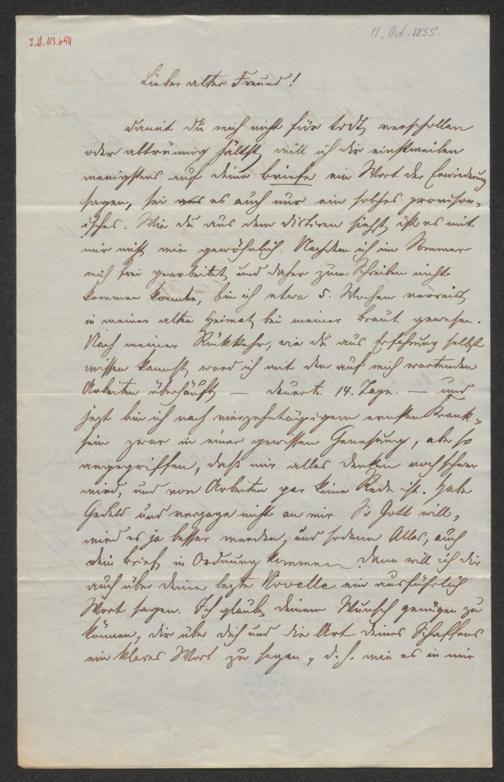 I.N. 113.694
11. Oct. 1855.
Lieber alter Freund!
damit du mich nicht für todt, verschollen
oder abtrünnig hältst, will ich dir einstweilen
wenigstens auf deine Briefe ein Wort der Erwiderung
sagen, sei es auch nur ein solches provisor-
isches. Wie du aus dem Dictiren siehst, ist es mit
mir nicht wie gewöhnlich. Nachdem ich im Sommer
mich frei gearbeitet, und daher zum Schreiben nicht
kommen konnte, bin ich etwa 5. Wochen verreist
in meiner alten Heimat bei meiner Braut gewesen.
Nach meiner Rückkehr, wie du aus Erfahrung selbst
wissen kannst, ward ich mit den auf mich wartenden
Arbeiten überhäuft — dauerte 14. Tage. — und
jezt bin ich nach vierzehntägigem ernsten Krank-
sein zwar in einer gewissen Genesung, aber so
angegriffen, daß mir alles Denken noch schwer
wird, und von Arbeiten gar keine Rede ist. Habe
Geduld und verzage nicht an mir. So Gott will,
wird es ja besser werden, und sodann Alles, auch
dein Brief in Ordnung kommen. Dann will ich dir
auch über deine lezte Novelle ein ausführlich
Wort sagen. Ich glaube deinem Wunsch genügen zu
können, dir über dich und die Art deines Schaffens
ein klares Wort zu sagen, d. h. wie es in mir